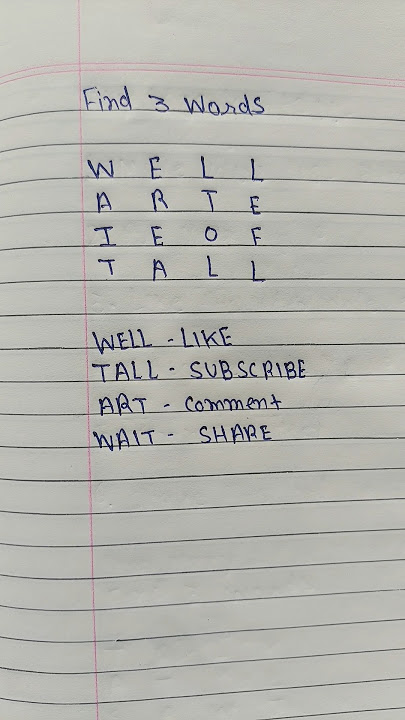 Find 3 Words
W E L L
A R T E
I E O F
T A L L
WELL - LIKE
TALL - SUBSCRIBE
ART - Comment
WAIT - SHARE